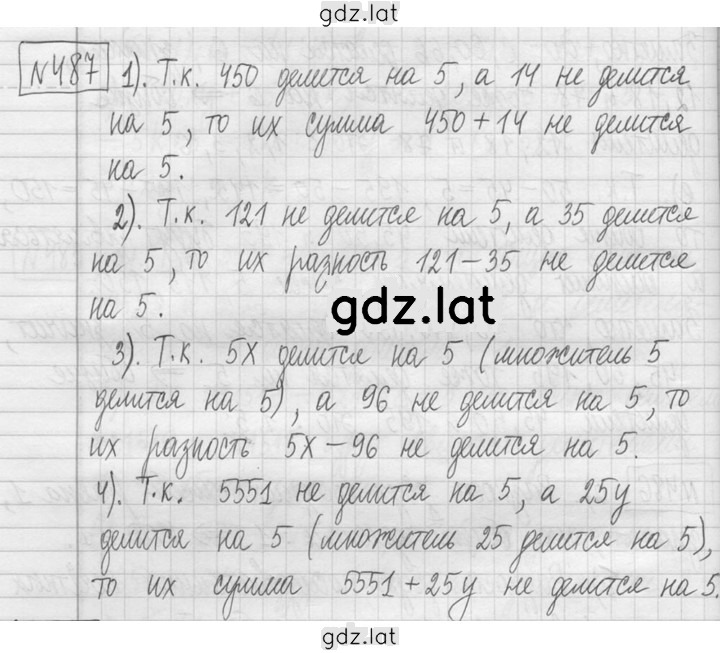 gdz.lat
№487 1). Т.к. 450 делится на 5, а 14 не делится
на 5, то их сумма 450+14 не делится
на 5.
2). Т.к. 121 не делится на 5, а 35 делится
на 5, то их разность 121-35 не делится
на 5.
gdz.lat
3). Т.к. 5х делится на 5 (множитель 5
делится на 5), а 96 не делится на 5, то
их разность 5х-96 не делится на 5.
4). Т.к. 5551 не делится на 5, а 25у
делится на 5 (множитель 25 делится на 5),
то их сумма 5551+25у не делится на 5.
gdz.lat